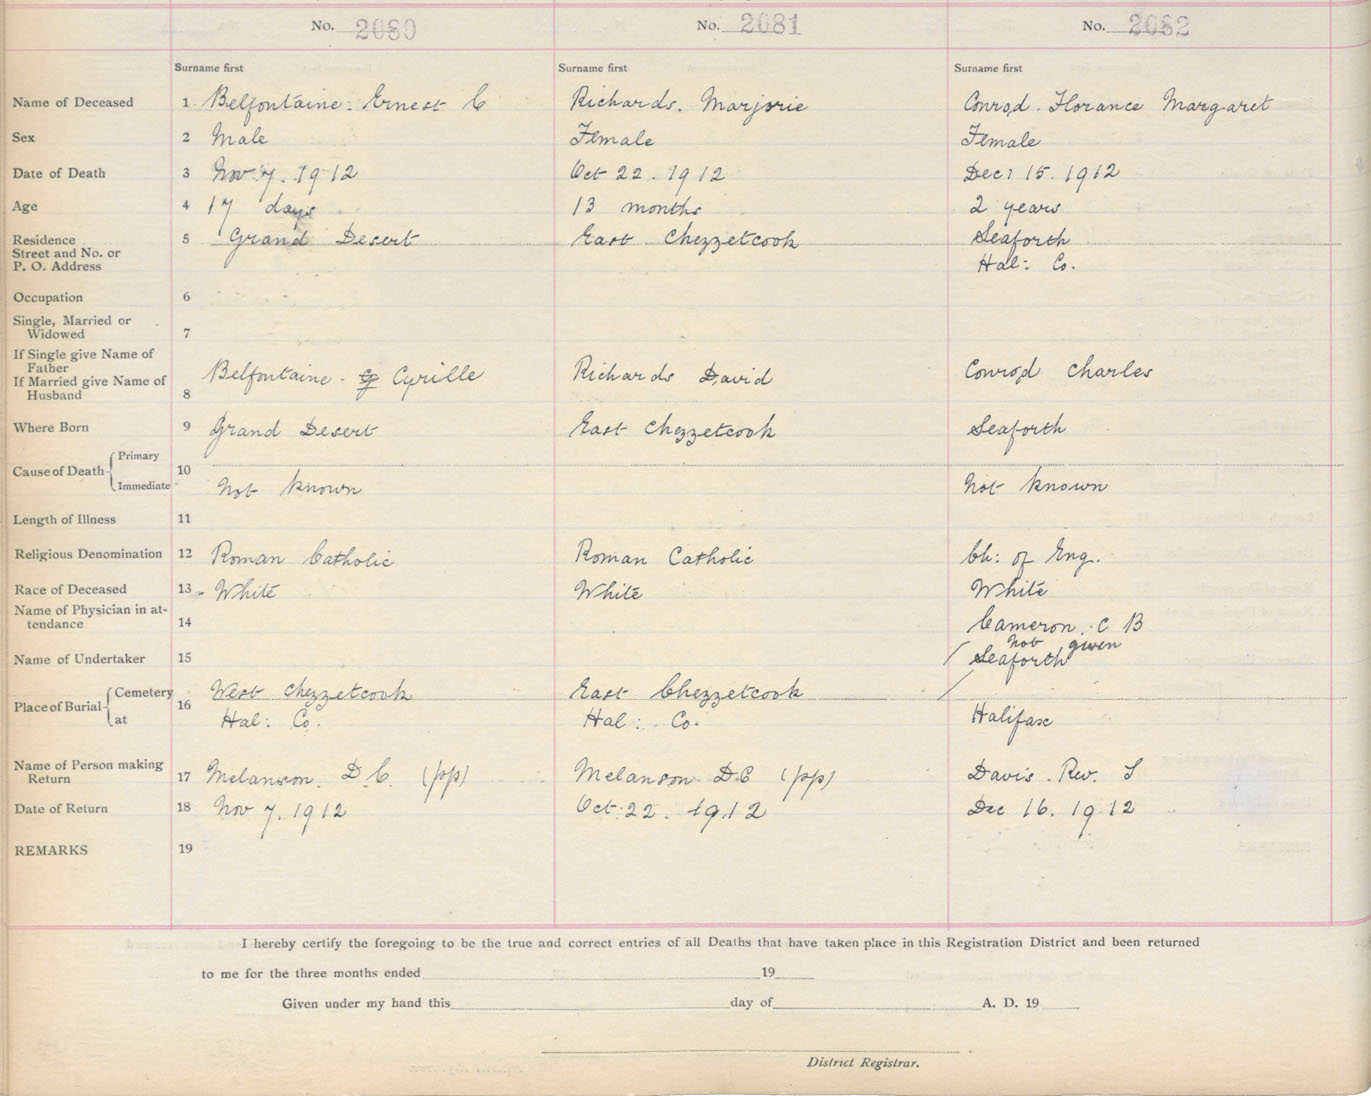 No. 2080 No. 2081 No. 2082
Surname first Surname first Surname first
Name of Deceased 1 Belfontaine. Ernest C Richards. Marjorie Conrod. Florance Margaret
Sex 2 Male Female Female
Date of Death 3 Nov 7. 1912 Oct 22. 1912 Dec 15. 1912
Age 4 17 days 13 months 2 years
Residence 5 Grand Desert East Chezzetcook Seaforth
Street and No. or
P. O. Address Hal: Co.
Occupation 6
Single, Married or
Widowed 7
If Single give Name of
Father
If Married give Name of Belfontaine - Cyrille Richards David Conrod Charles
Husband 8
Where Born 9 Grand Desert East Chezzetcook Seaforth
Cause of Death Primary 10
Immediate Not known Not known
Length of Illness 11
Religious Denomination 12 Roman Catholic Roman Catholic Ch: of Eng.
Race of Deceased 13 White White White
Name of Physician in at-
tendance 14 Cameron. C B
not given
Name of Undertaker 15 Seaforth
Place of Burial Cemetery 16 West Chezzetcook East Chezzetcook
at Hal: Co. Hal: Co. Halifax
Name of Person making
Return 17 Melanson. D. C. (pp) Melanson D C (pp) Davis. Rev. S
Date of Return 18 Nov 7. 1912 Oct 22. 1912 Dec 16. 1912
REMARKS 19
I hereby certify the foregoing to be the true and correct entries of all Deaths that have taken place in this Registration District and been returned
to me for the three months ended 19
Given under my hand this day of A. D. 19
District Registrar.